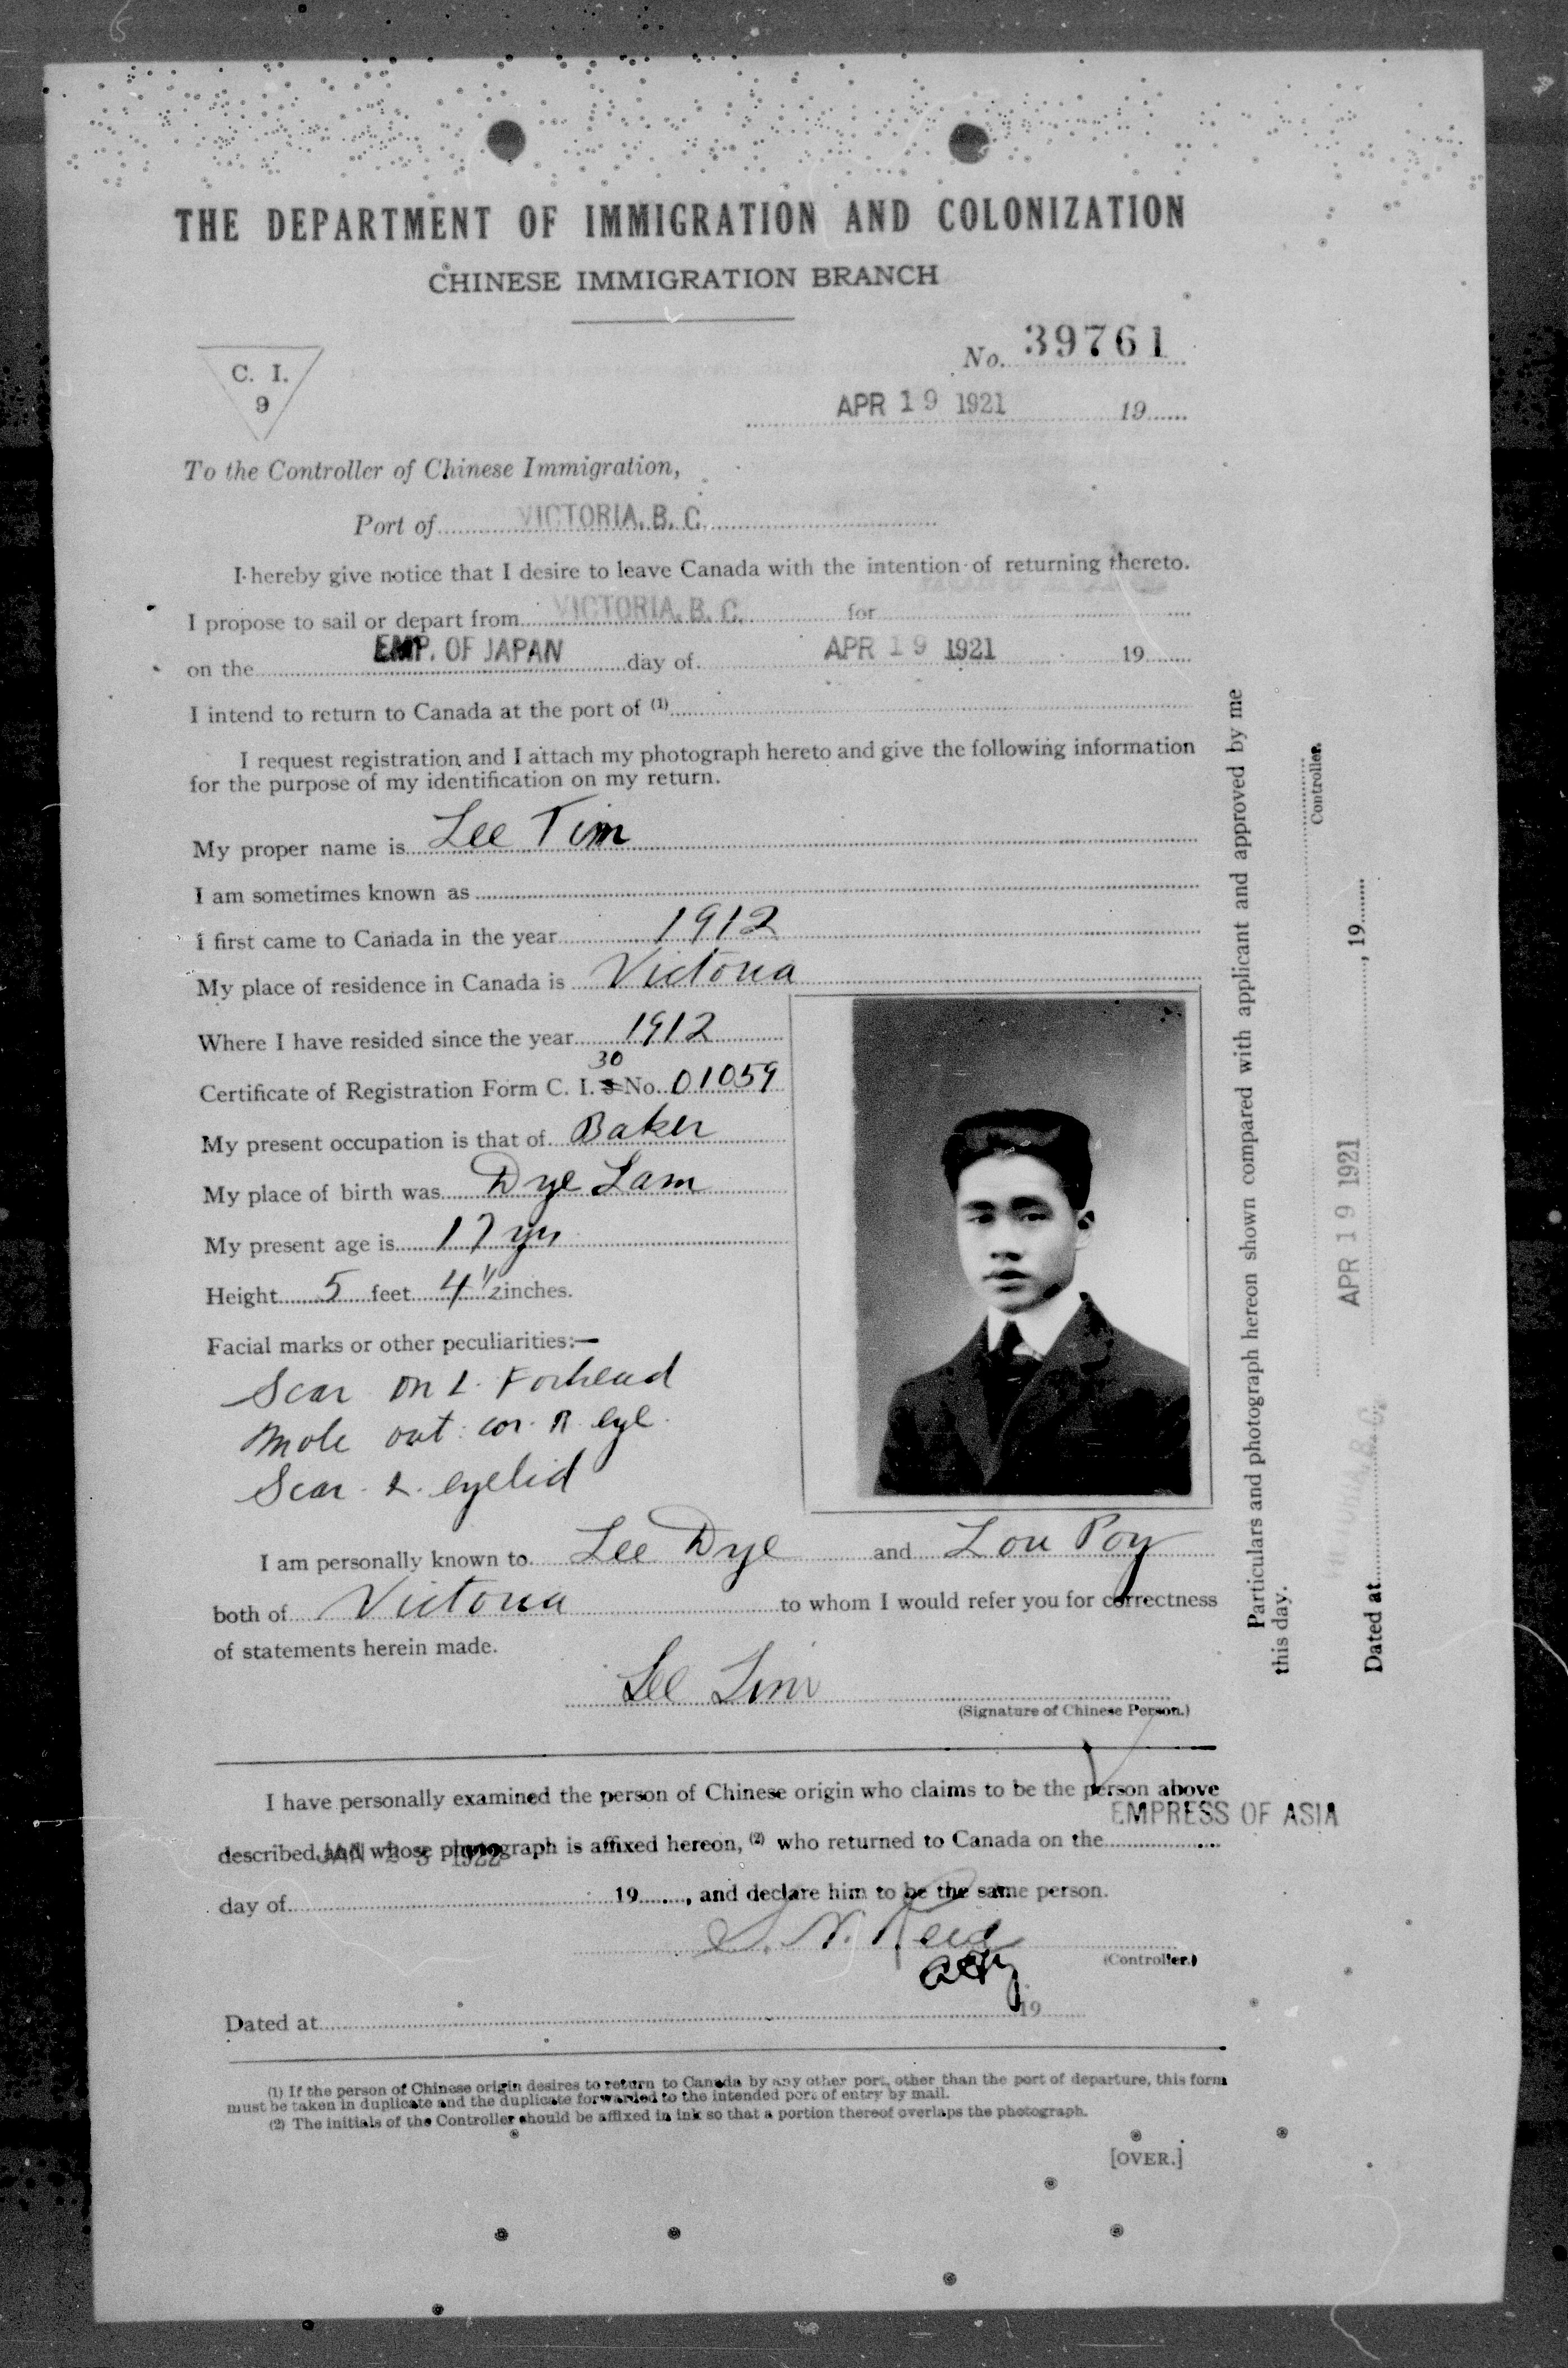 THE DEPARTMENT OF IMMIGRATION AND COLONIZATION
CHINESE IMMIGRATION BRANCH
No. 39761
C. I.
9
APR 19 1921 19
To the Controller of Chinese Immigration,
Port of VICTORIA, B. C.
I hereby give notice that I desire to leave Canada with the intention of returning thereto.
I propose to sail or depart from VICTORIA, B. C. for
on the EMP. OF JAPAN day of APR 19 1921 19
I intend to return to Canada at the port of (1)
I request registration and I attach my photograph hereto and give the following information
for the purpose of my identification on my return.
My proper name is Lee Tim
I am sometimes known as
I first came to Canada in the year 1912
My place of residence in Canada is Victoria
Where I have resided since the year 1912
30
Certificate of Registration Form C. I. 5 No. 01059
My present occupation is that of Baker
My place of birth was Dye Lam
My present age is 17 yrs
Height 5 feet 4 1/2 inches.
Facial marks or other peculiarities:—
Scar on L. Forhead
Mole out. cor. R eye.
Scar L. eyelid
I am personally known to Lee Dye and Lou Poy
both of Victoria to whom I would refer you for correctness
of statements herein made.
Lee Tim
(Signature of Chinese Person.)
I have personally examined the person of Chinese origin who claims to be the person above
EMPRESS OF ASIA
described and whose photograph is affixed hereon, (2) who returned to Canada on the
JAN 23 1922
day of 19 , and declare him to be the same person.
N. Reid
(Controller.)
Dated at 19
(1) If the person of Chinese origin desires to return to Canada by any other port, other than the port of departure, this form
must be taken in duplicate and the duplicate forwarded to the intended port of entry by mail.
(2) The initials of the Controller should be affixed in ink so that a portion thereof overlaps the photograph.
[OVER.]
Particulars and photograph hereon shown compared with applicant and approved by me
this day.
Controller.
Dated at B. C. APR 19 1921 , 19